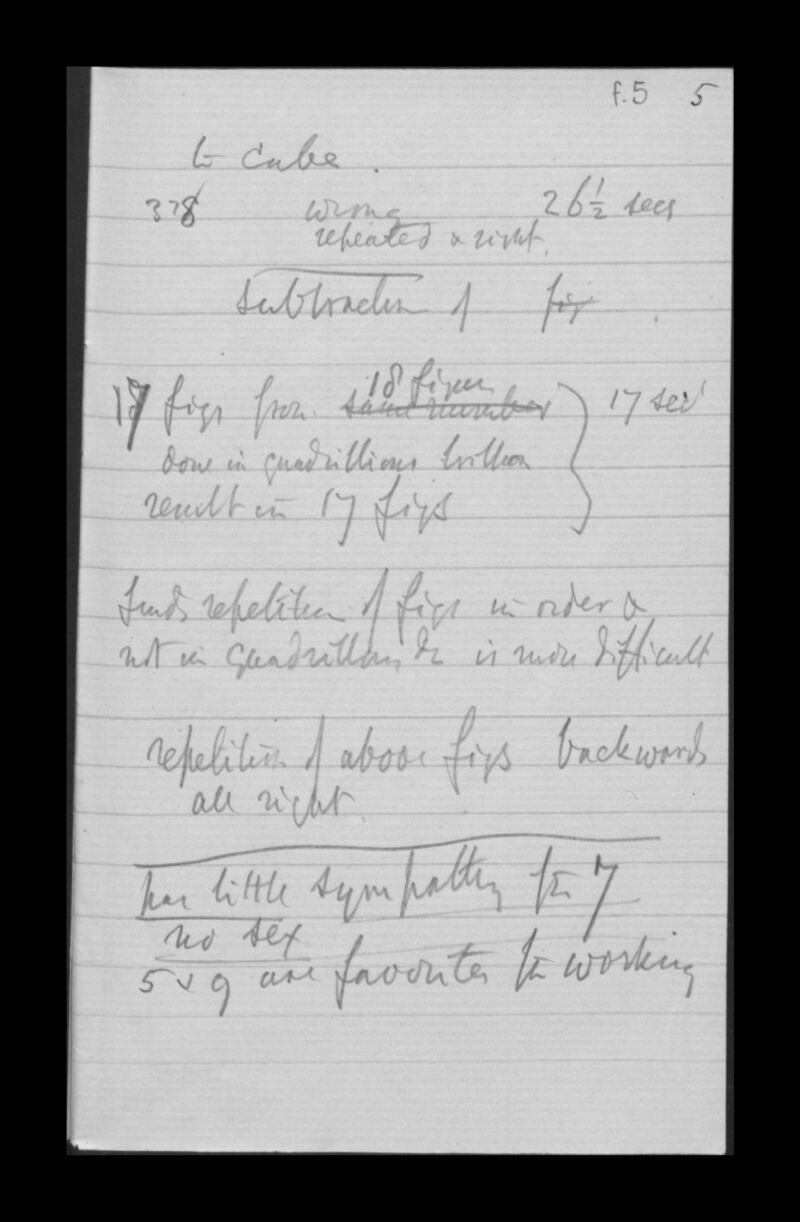 f.5 5
to cube.
378 wrong 26½ secs
repeated & right.
Subtraction of fig
18 figs from same number 18 figures 17 sec
done in quadrillions trillion
result in 17 figs
finds repetition of figs in order &
not in quadrillions &c is more difficult
repetition of above figs backwards
all right.
has little sympathy for 7
no sex
5 & 9 are favourites for working